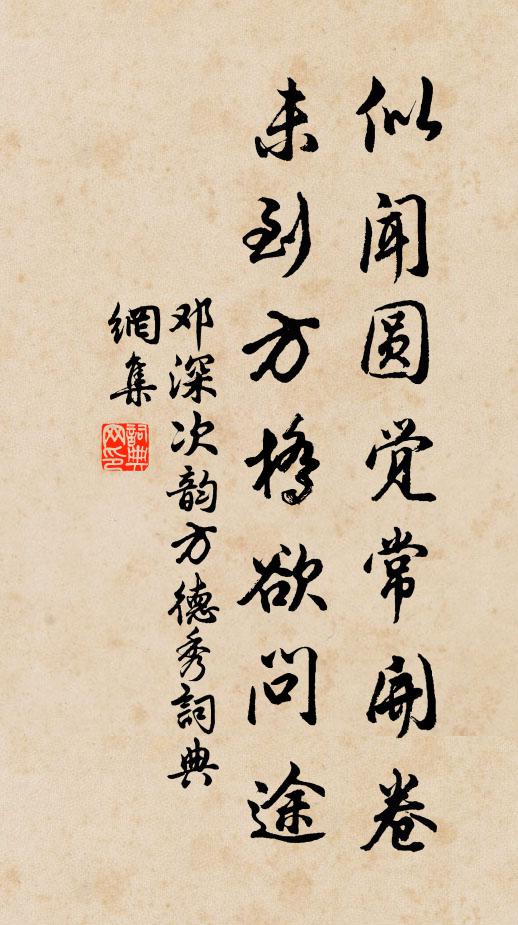 似闻圆觉常开卷
未到方桥欲问途
邓深次韵方德秀詞典
網集
詞典
网印